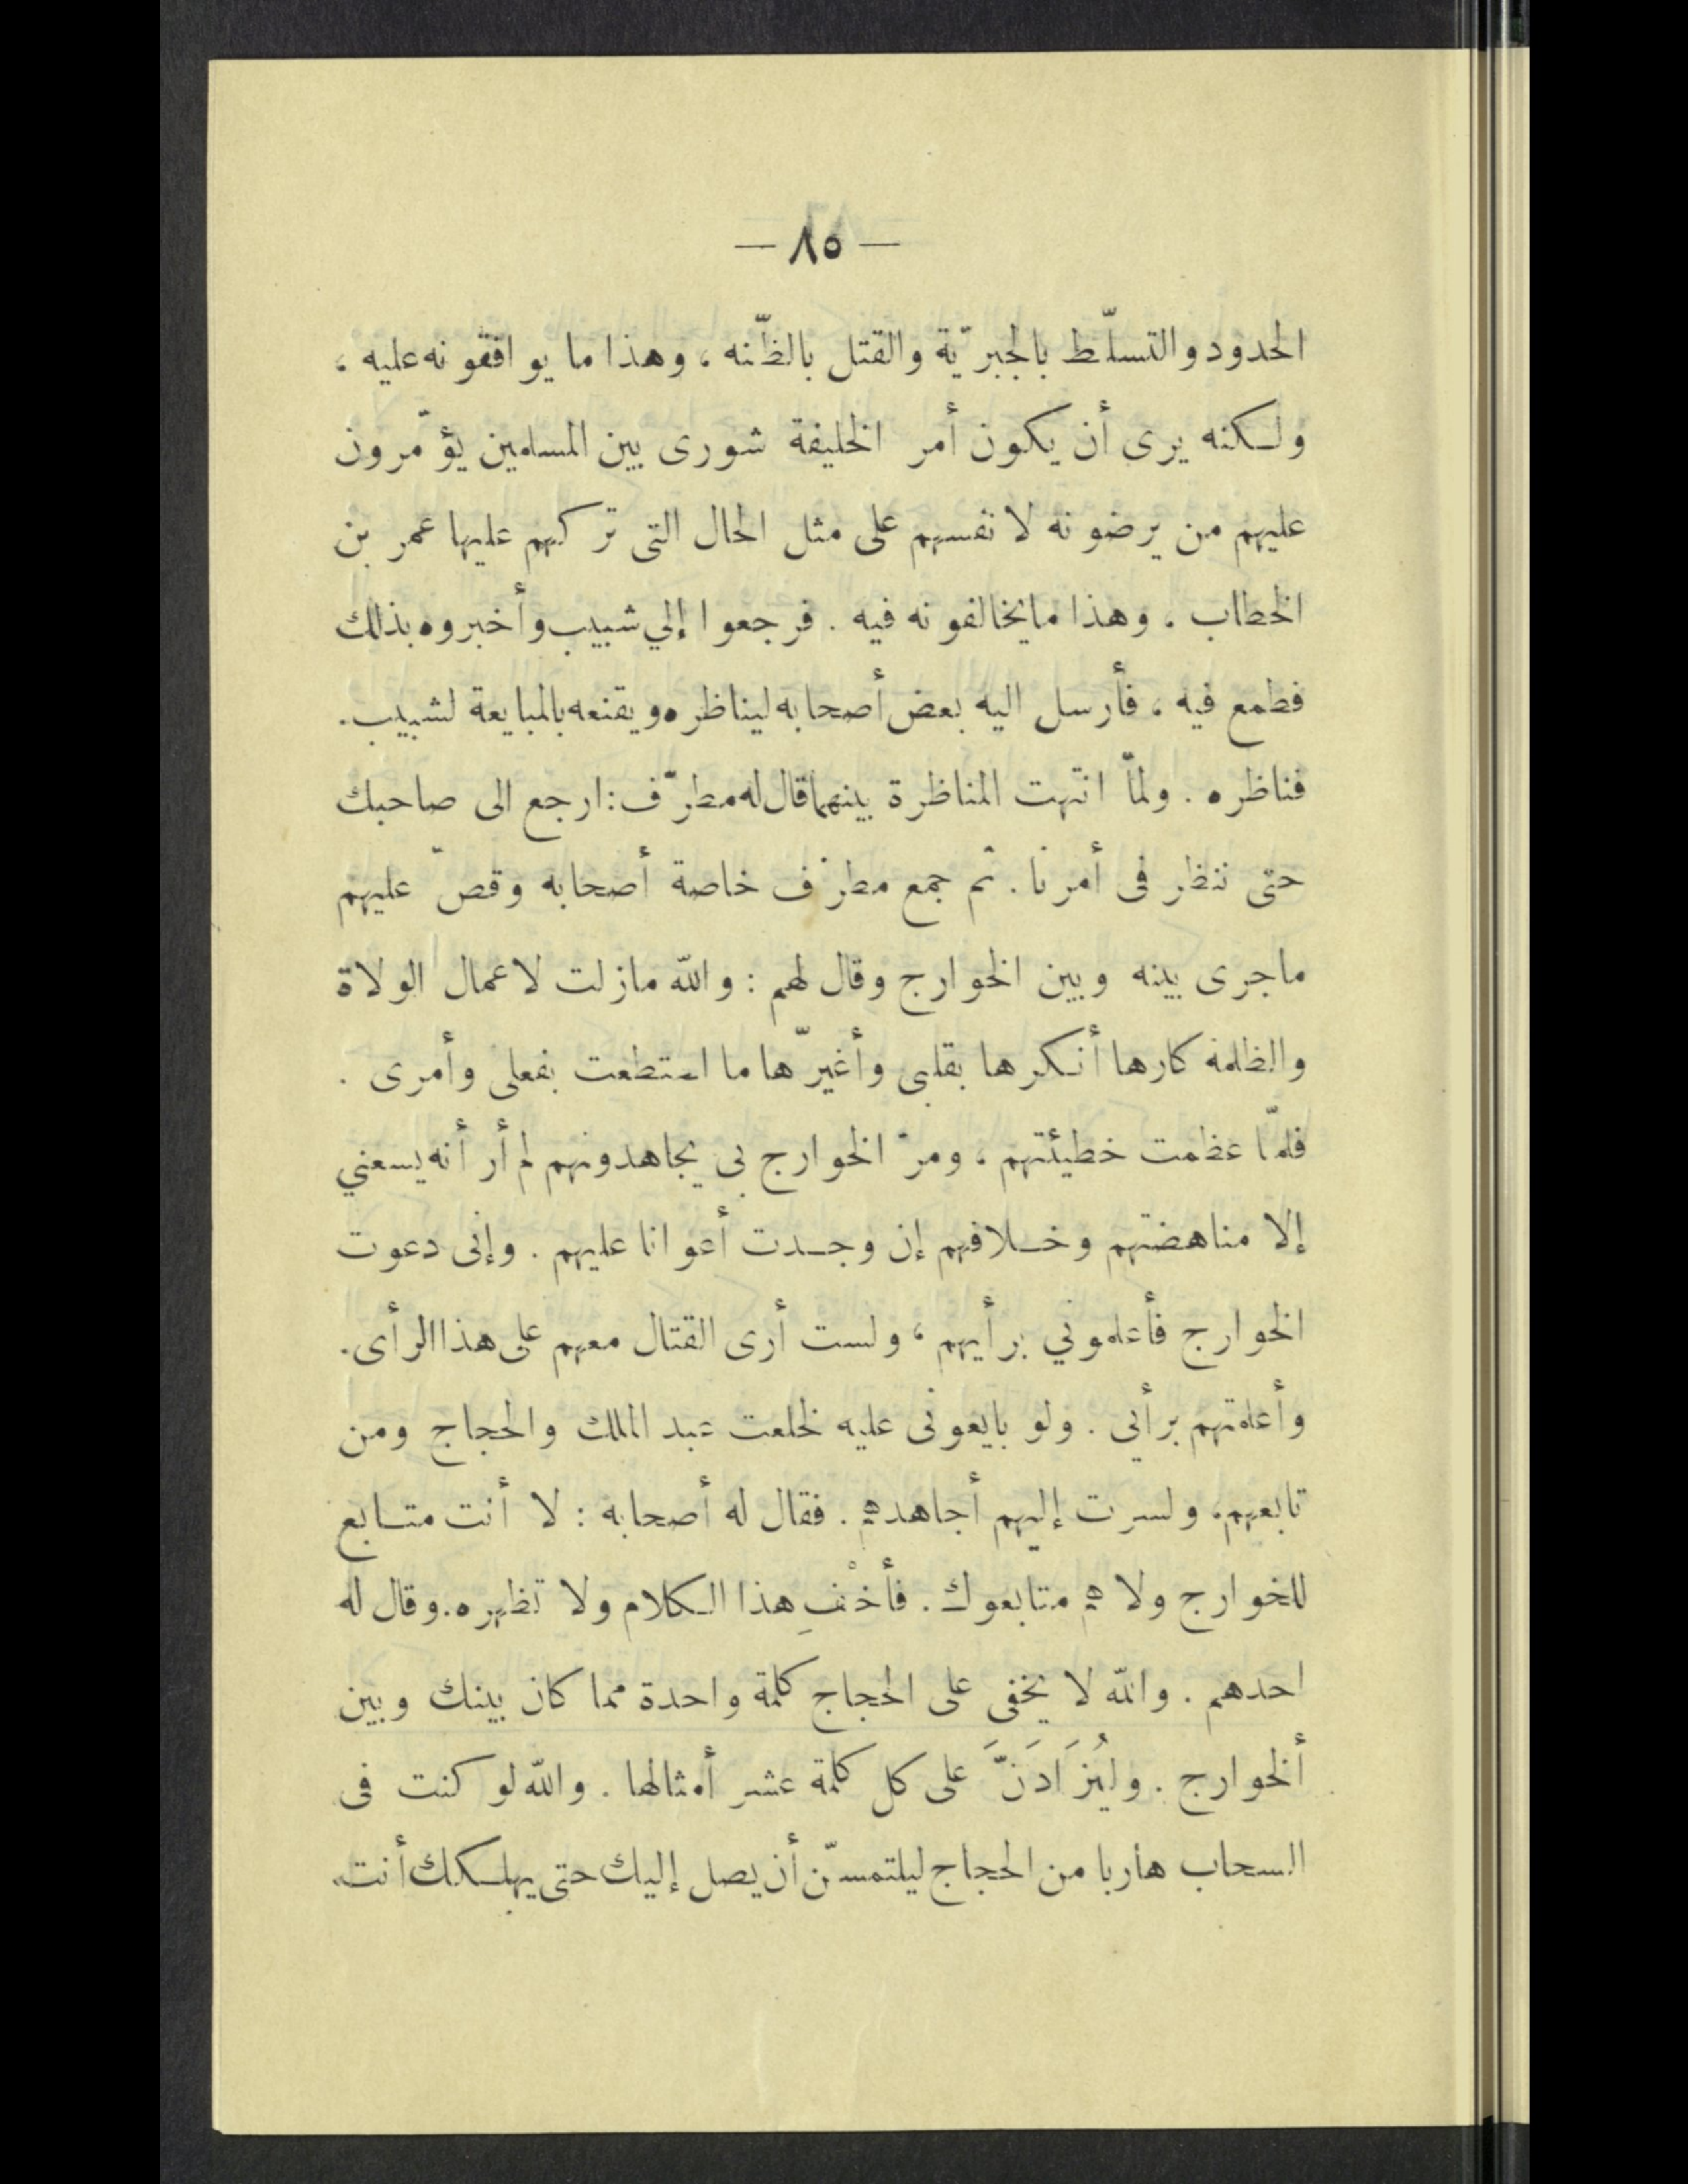 — ٨٥ —
الحدود والتسلّط بالجبريّة والقتل بالظّنه ، وهذا ما يوافقونه عليه ،
ولكنه يرى أن يكون أمر الخليفة شورى بين المسلمين يؤمّرون
عليهم من يرضونه لانفسهم على مثل الحال التى تركهم عليها عمر بن
الخطاب ، وهذا مايخالفونه فيه . فرجعوا إلي شبيب وأخبروه بذلك
فطمع فيه ، فأرسل اليه بعض أصحابه ليناظره ويقنعه بالمبايعة لشبيب .
فناظره . ولمّا انتهت المناظرة بينهما قال له مطرّف : ارجع الى صاحبك
حتى ننظر فى أمرنا . ثم جمع مطرّف خاصة أصحابه وقصّ عليهم
ماجرى بينه وبين الخوارج وقال لهم : والله مازلت لاعمال الولاة
والظلمة كارها أنكرها بقلبى وأغيّرها ما استطعت بفعلى وأمرى .
فلمّا عظمت خطيئتهم ، ومرّ الخوارج بى يجاهدونهم لم أر أنه يسعني
إلا مناهضتهم وخلافهم إن وجدت أعوانا عليهم . وإنى دعوت
الخوارج فأعلموني برأيهم ، ولست أرى القتال معهم على هذا الرأى .
وأعلمتهم برأيى . ولو بايعونى عليه لخلعت عبد الملك والحجاج ومن
تابعهم ، ولسرت إليهم أجاهدهم . فقال له أصحابه : لا أنت متابع
للخوارج ولا هم متابعوك . فأخْفِ هذا الكلام ولا تظهره . وقال له
احدهم . والله لا يخفى على الحجاج كلمة واحدة مما كان بينك وبين
ألخوارج . وليُزَادَنَّ على كل كلمة عشر أمثالها . والله لو كنت فى
السحاب هاربا من الحجاج ليلتمسنّ أن يصل إليك حتى يهلكك أنت